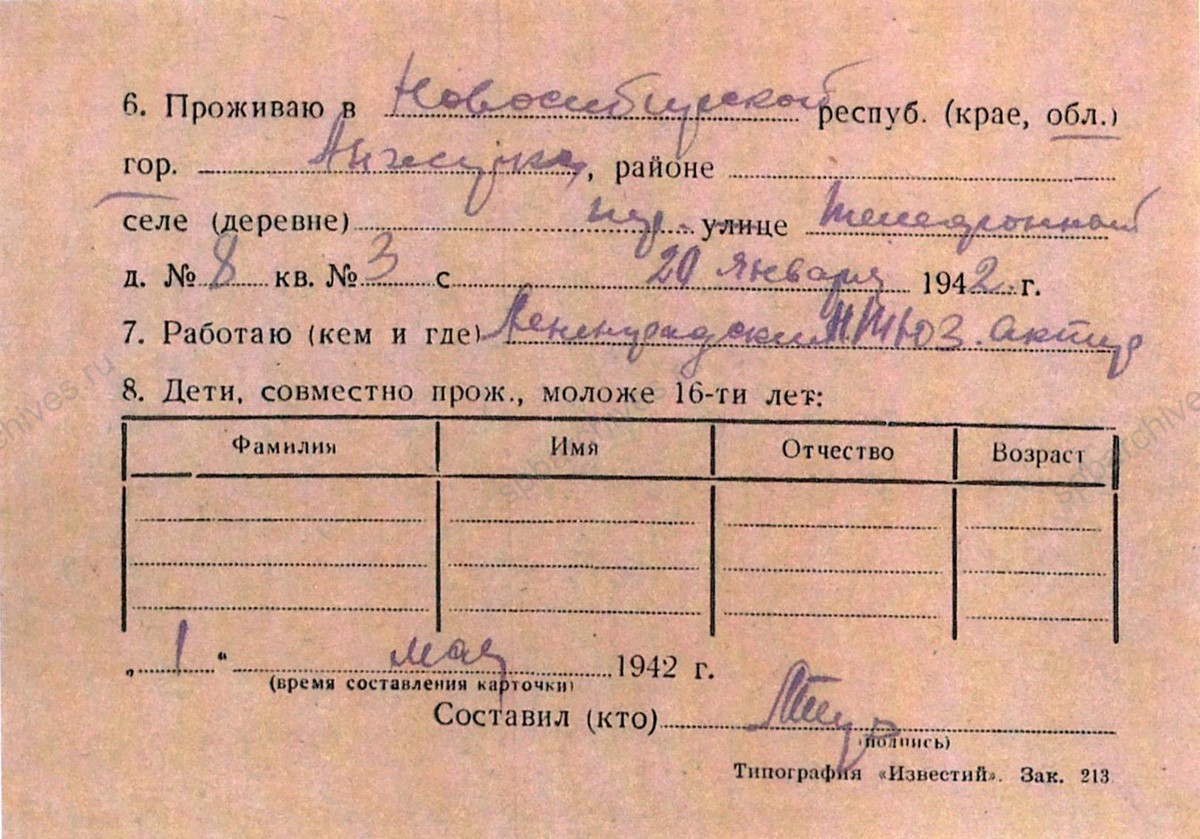 6. Проживаю в Новосибирской респуб. (крае, обл.)
гор. Анжерка, районе
селе (деревне) пер. улице Телефонный
д. № 8 кв. № 3 с 20 января 1942 г.
7. Работаю (кем и где) Ленинградский ТЮЗ. актер
8. Дети, совместно прож., моложе 16-ти лет:
Фамилия Имя Отчество Возраст
„ 1 “ мая 1942 г.
(время составления карточки)
Составил (кто)
(подпись)
Типография «Известий». Зак. 213
spbarchives.ru